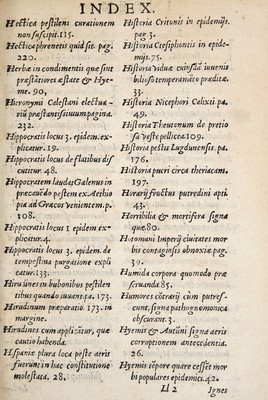 INDEX.
Hectica pestilens curationem
non suscipit. 115.
Hectica phrenetis quid sit. pag.
220.
Herbæ in condimentis quæ sint
præstâtiores æstate & Hye-
me. 90,
Hieronymi Celestani electua-
riũ præstantissimum pagina.
232.
Hippocratis locus 3. epidem. ex-
plicatur. 19.
Hippocratis locus de flatibus dis
cutitur. 48.
Hippocratem laudat Galenus in
præcauēdo pestem ex Aethio
pia ad Græcos venientem. p.
108.
Hippocratis locus 1 epidem ex
plicatur. 4.
Hippocratis locus 3. epidem. de
tempestiua purgatione expli
catur. 133.
Hirudines in bubonibus pestilen
tibus quando iuuent. pa. 173.
Hirudinum præparatio 173. in
margine.
Hirudines cum applicātur, que
cautio habenda.
Hispaniæ plura loca peste aeris
fuerunt in hac constitutione
molestata. 28.
Historia Critonis in epidemijs.
pag 3.
Historia Ctesiphontis in epide-
mijs. 75.
Historia viduæ cuiusdā iuuenis
bilioso temperamēto præditæ.
33.
Historia Nicephori Calixti. pa.
49.
Historia Theutonum de pretio
sa veste pellicea 109.
Historia pestis Lugdunensis. pa.
176.
Historia pueri circa theriacam.
197.
Horarij fructus putredini apti.
43.
Horribilia & mortifera signa
quæ 80.
Hotomani Imperij ciuitates mor
bis contagiosis obnoxiæ pag.
39.
Humida corpora quomodo præ
seruanda 85.
Humores cōtrarij cùm putres-
cunt, signa pathognomonica
obscurant. 3.
Hyemis & Autũni signa aeris
corruptionem antecedentia.
26.
Hyemis tēpore quare cesset mor
bi populares epidemici. 42.
Ll 2 Ignes